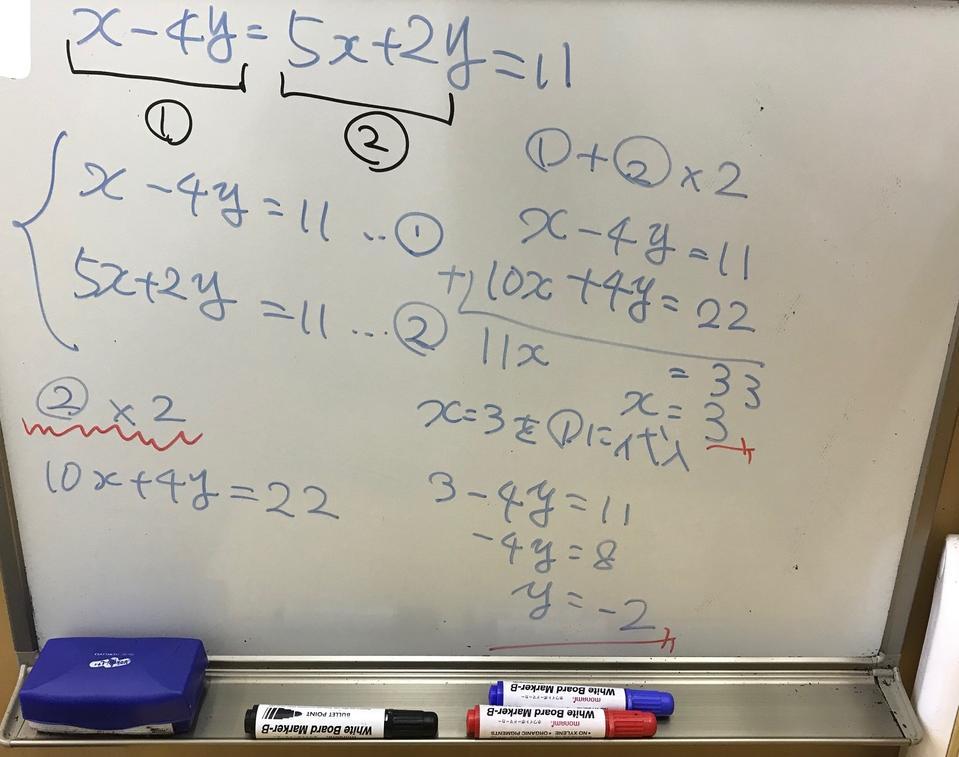 x-4y=5x+2y=11
① ②
x-4y=11 ‥①
5x+2y=11 …②
②×2
10x+4y=22
①+②×2
x-4y=11
+) 10x+4y=22
11x = 33
x=3
x=3を①に代入
3-4y=11
-4y=8
y=-2
BULLET POINT
White Board Marker-B
monami
White Board Marker-B
monami
White Board Marker-B
• NO XYLENE • ORGANIC PIGMENTS